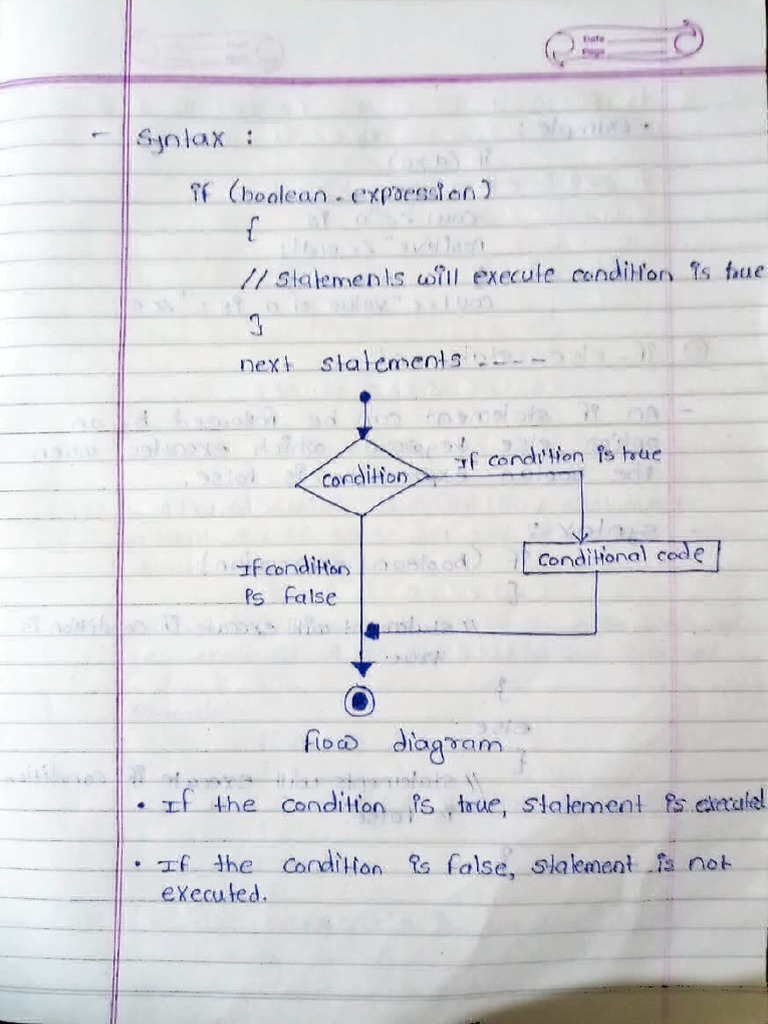 Date
Page
- Syntax :
if (boolean - expression)
{
// statements will execute condition is true
}
next statements - - - -
condition
If condition is true
conditional code
If condition
is false
flow diagram
• If the condition is, true, statement is executed
• If the condition is false, statement is not
executed.